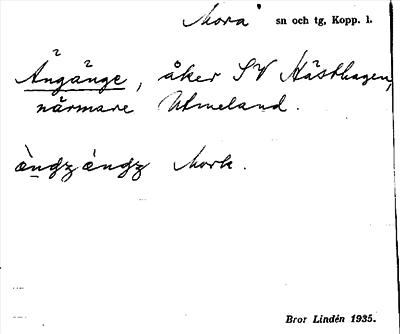 Mora sn och tg, Kopp. l.
Ängänge, åker SV Hästhagen,
närmare Utmeland.
 æ̀ngʒængʒ Mork.
Bror Lindén 1935.